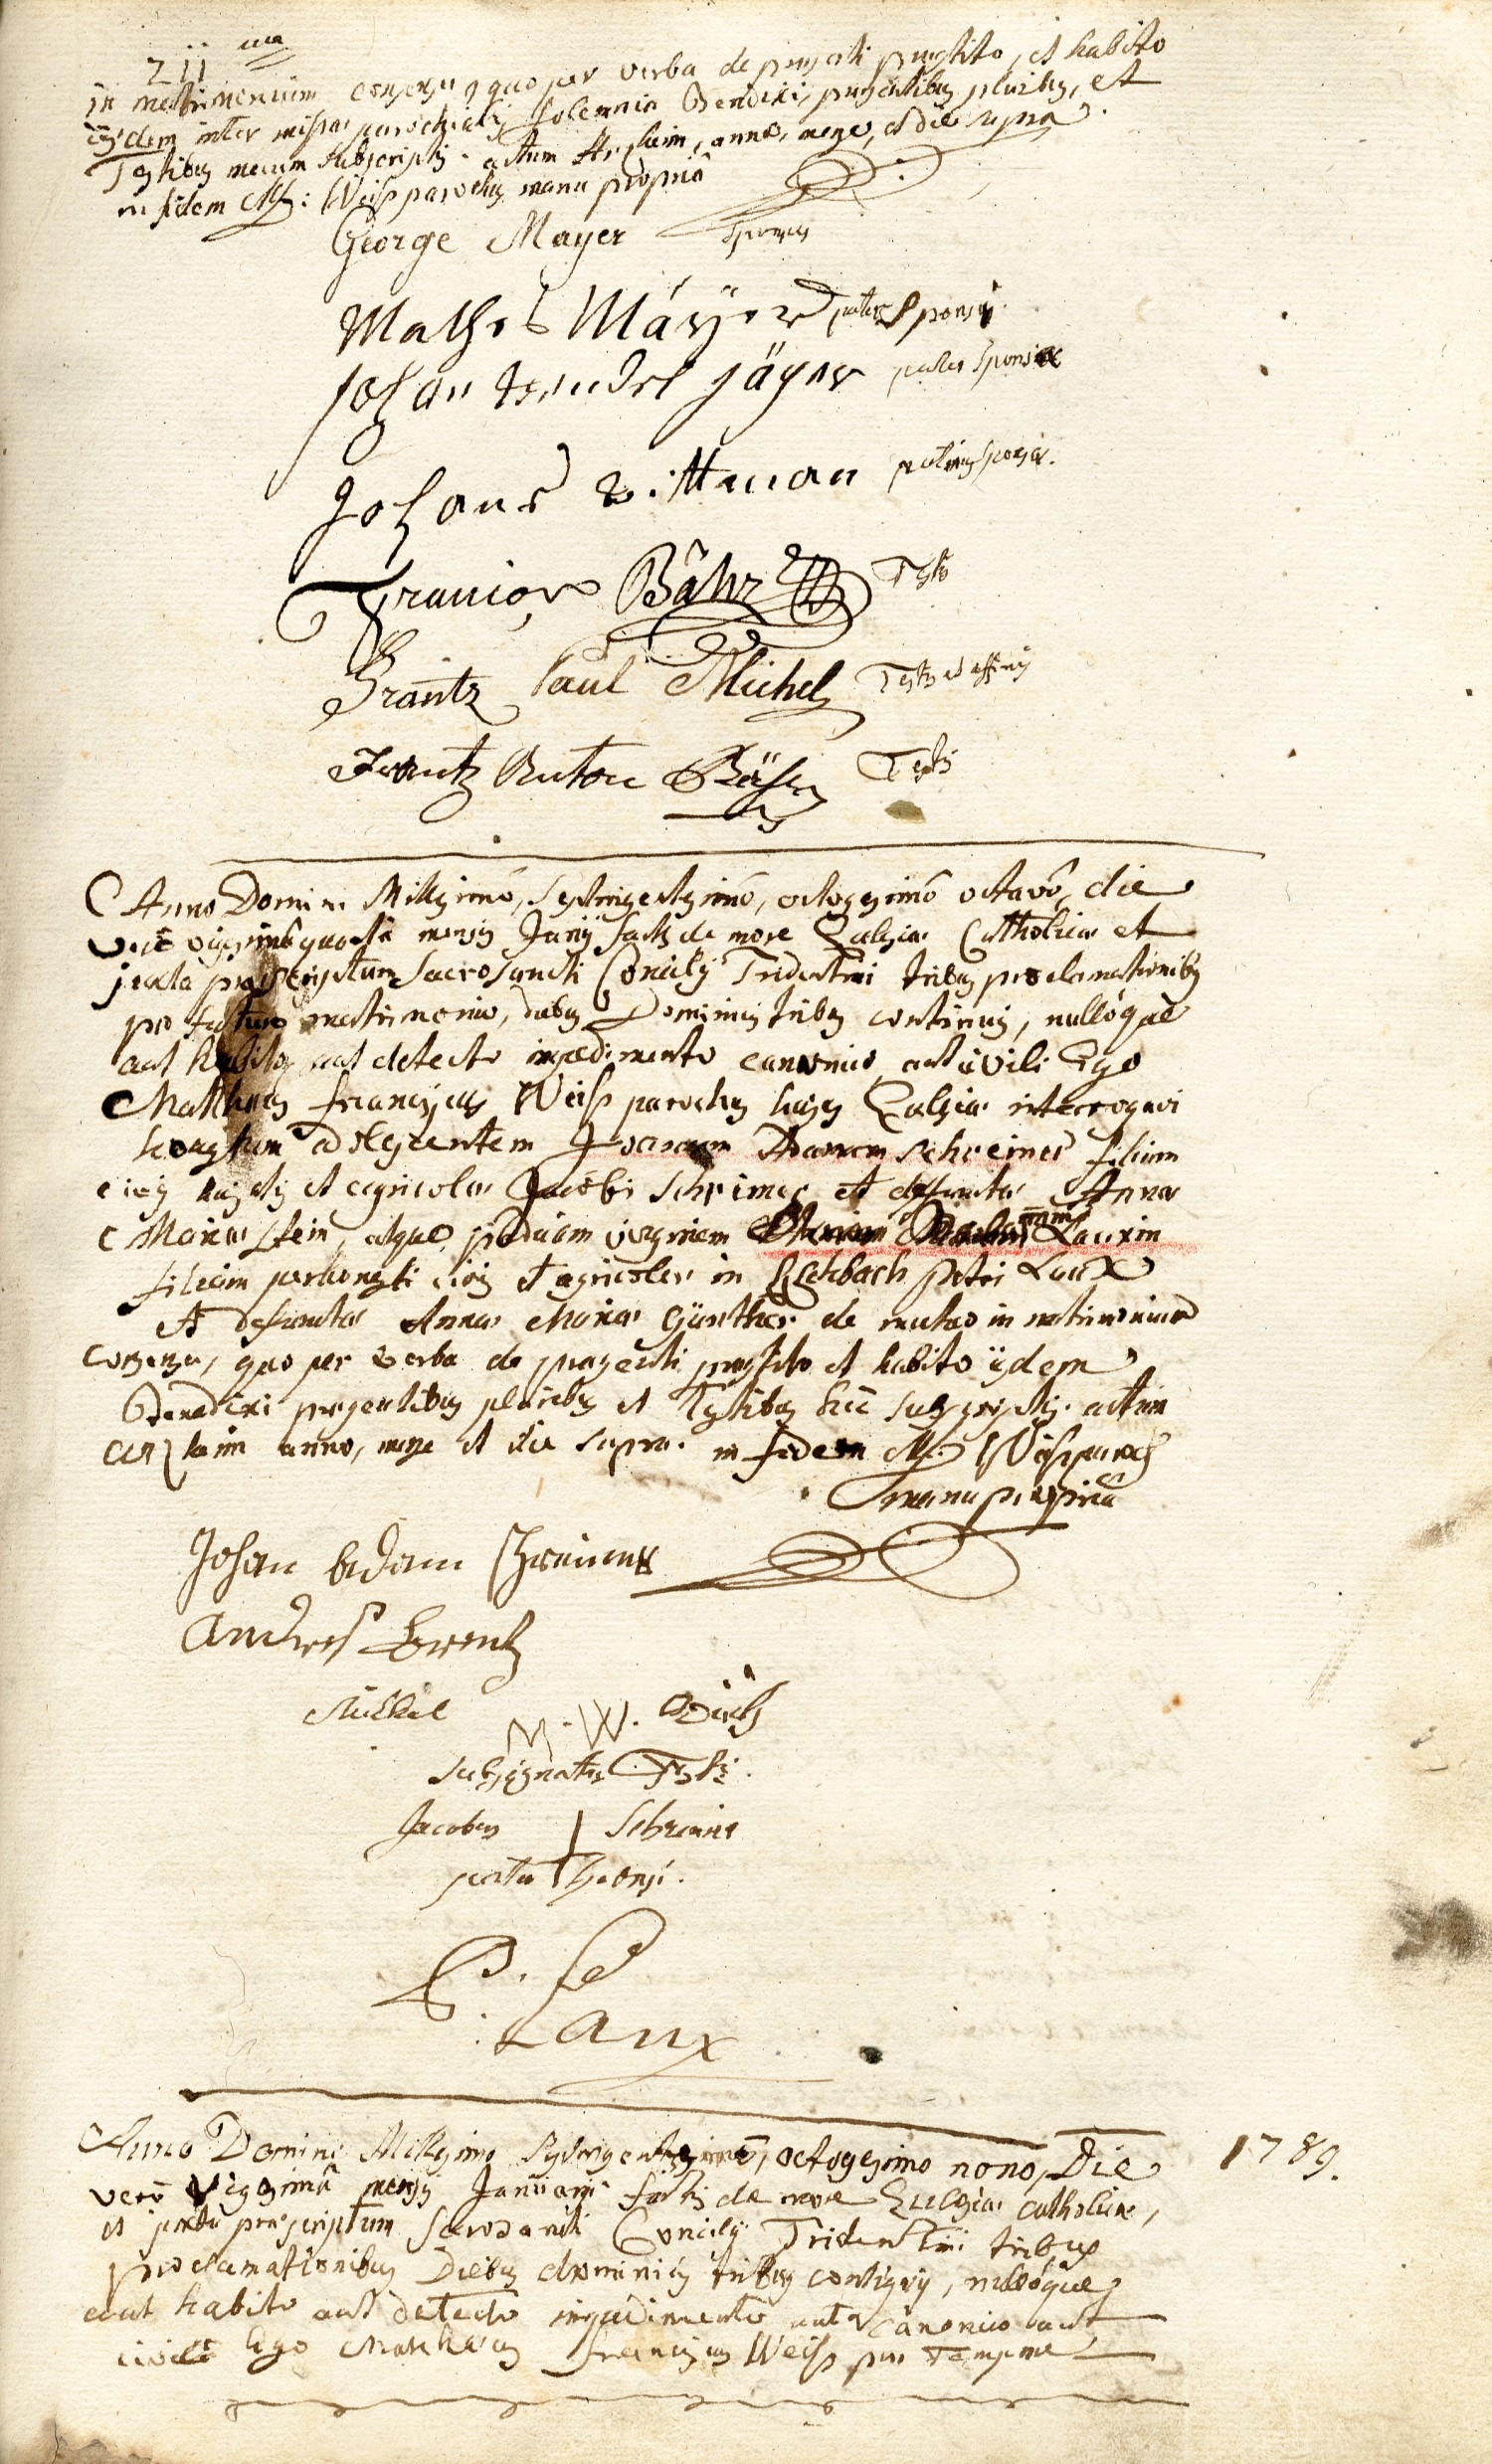 211 ma
in matrimonium consensu, quo per verba de presenti prestito, et habito
iisdem inter missae parochialis solemnia Benedixi, presentibus pluribus, et
Testibus mecum subscriptis. actum Arzheim, anno, mense, et die supra.
in fidem M: Weiß parochus manu propriâ
George Mayer Sponsus
Mathes Mäÿer pater Sponsi
Johan Wendel jäger pater Sponsae
Johans wittman patrinus sponsae.
Bähr Testis
Frantz Paul Michel Testis et affinis
Frantz Anton Testis
Anno Domini Millesimo, Septingentesimo, octogesimô octavô, die
verô vigesimâ quartâ mensis Junÿ factis de more Ecclesiae Catholicae et
juxta praescriptum Sacrosancti Concilÿ Tridentini tribus proclamationibus
pro futuro matrimonio, diebus Dominicis tribus continuis, nullóque
aut habito, aut detecto impedimento canonico, aut civili Ego
Matthaeus Franciscus Weiß parochus hujus Ecclesiae interrogavi
honestum adolescentem Joannem Adamum Schreiner filium
civis hujatis et agricolae Jacobi Schreiner et defunctae Annae
Mariae Stein, atque pudicam virginem Lauxin
filiam perhonesti civis et agricolae in Eschbach petri Laux
et defunctae Annae Mariae Günther de mutuo in matrimonium
consensu, quo per verba de praesenti prestito et habito iisdem
Benedixi presentibus pluribus et Testibus hic subscriptis. actum
arzheim anno, mense et die supra. in fidem M. Weiß paroch
manu propriâ
Johan Adam Schreiner
Andres Lorentz
Michael M.W.
subsignatus Testis.
Jacobus Schreiner
pater Sponsi.
P. Laux
Anno Domini Millesimo Septingentesimô, octogesimo nono, Die 1789.
verô vigesimâ mensis Januarÿ factis de more Ecclesiae catholicae,
et juxta praescriptum Sacrosancti Concilÿ Tridentini tribus
proclamationibus Diebus dominicis tribus contiguis, nullóque
aut habito aut detecto impedimento aut canonico aut
civili Ego Matthaeus Franciscus Weiß pro Tempore